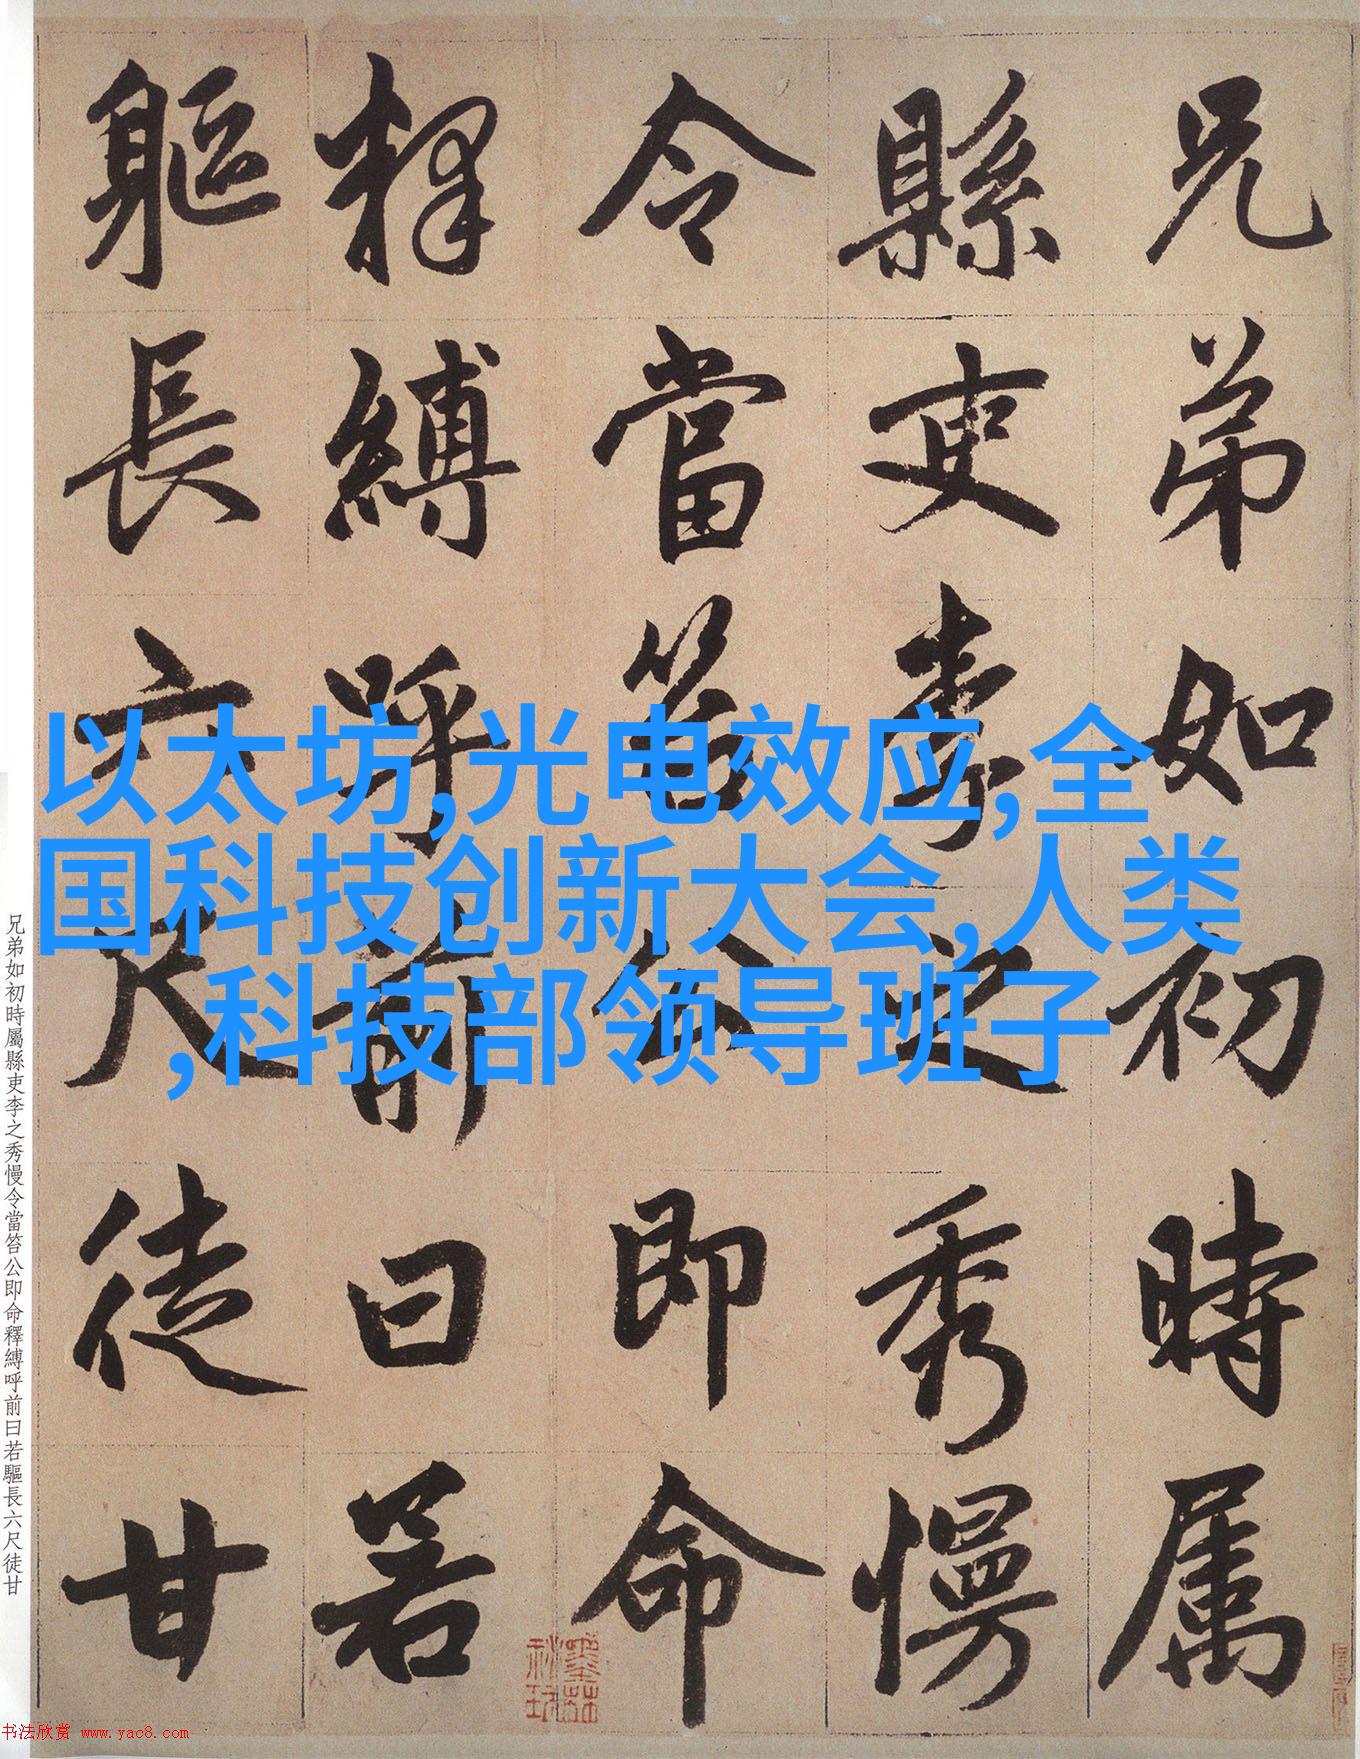 兄弟如初時属
縣吏李之秀慢
令當笞公即命
釋縛呼前曰若
軀長六尺徒甘
以太坊,光电效应,全
国科技创新大会,人类
,科技部领导班子
兄弟如初時屬縣吏李之秀慢令當笞公即命釋縛呼前曰若驅長六尺徒甘
书法欣赏 www.yac8.com